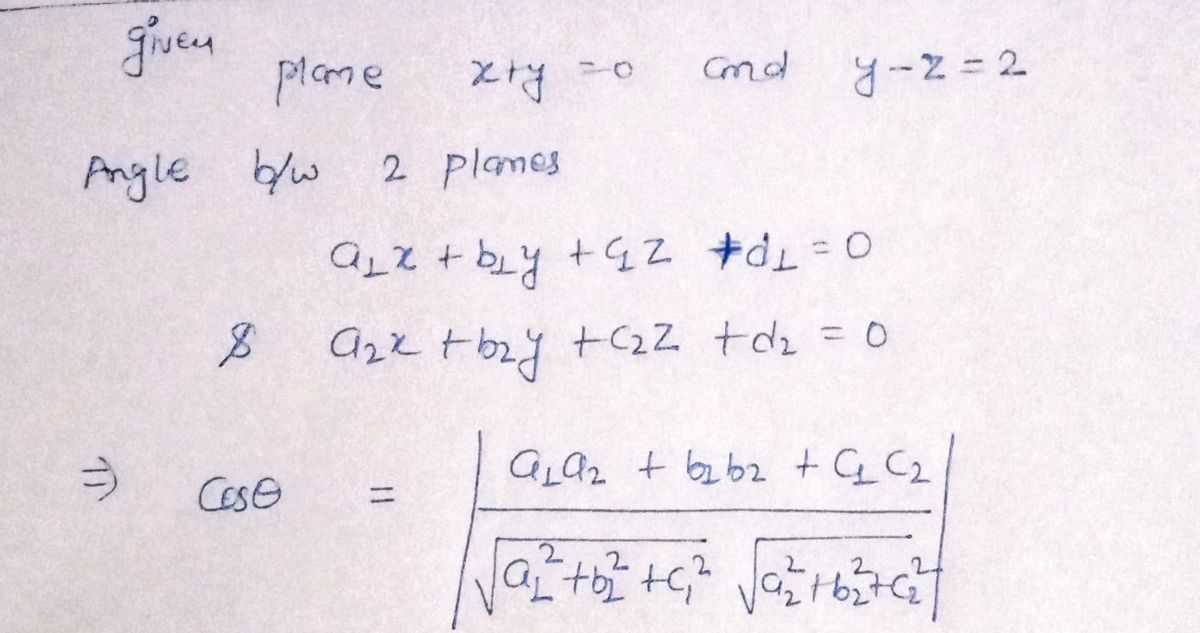 given
plane x+y =0 and y-z=2
Angle b/w 2 planes
a₁x + b₁y + c₁z +d₁ = 0
& a₂x + b₂y + c₂z + d₂ = 0
⇒ Cosθ = | a₁a₂ + b₂b₂ + c₁c₂ / √a₁²+b₁²+c₁² √a₂²+b₂²+c₂² |